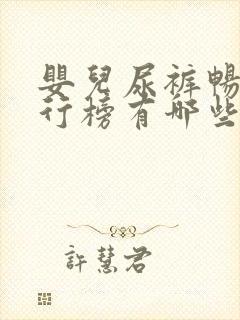 嬰兒尿褲暢
行榜有哪些
許慧君